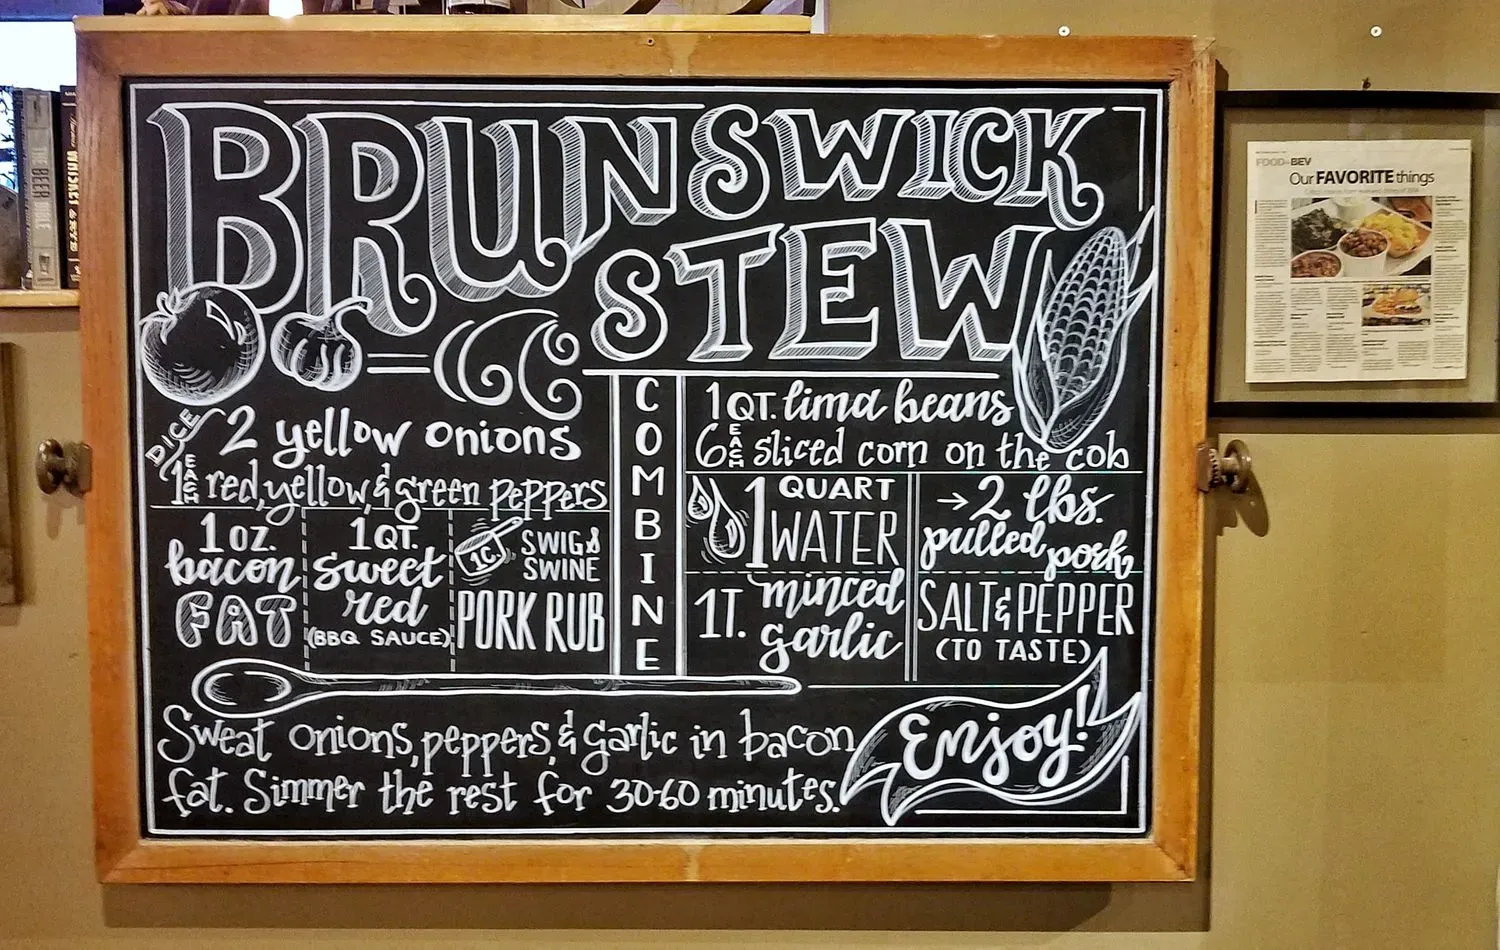 BRUNSWICK
STEW
DICE
2 yellow onions
1 EACH red, yellow, & green peppers
1 OZ.
bacon
FAT
1 QT.
sweet
red
(BBQ SAUCE)
1C.
SWIG &
SWINE
PORK RUB
COMBINE
1 QT. lima beans
6 EACH sliced corn on the cob
1 QUART
WATER
→2 lbs.
pulled pork
1T. minced
garlic
SALT & PEPPER
(TO TASTE)
Sweat onions, peppers, & garlic in bacon
fat. Simmer the rest for 30-60 minutes.
Enjoy!
FOOD+BEV
Our FAVORITE things
THE BEER BIBLE